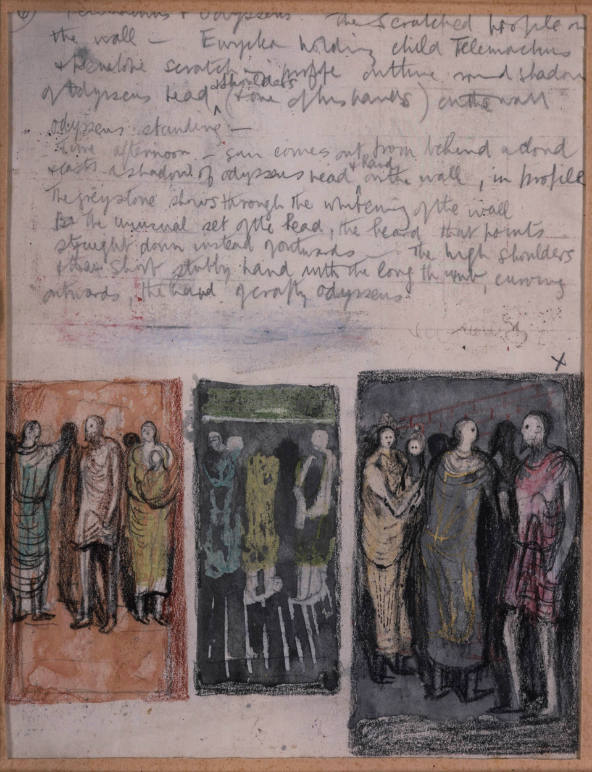 Telemachus + Odysseus. The scratched profile on
the wall — Euryclea holding child Telemachus
+ Penelope scratch in profile outline round shadow
of Odysseus head (+ shoulders + one of his hands) on the wall
Odysseus standing —
Time afternoon — sun comes out from behind a cloud
+ casts a shadow of Odysseus head + hand on the wall, in profile
The grey stone shows through the whitening of the wall
the unusual set of the head, the beard that points
straight down instead of outwards — The high shoulders
+ the short stubby hand with the long thumb, curving
outwards, the hand of crafty Odysseus.
X